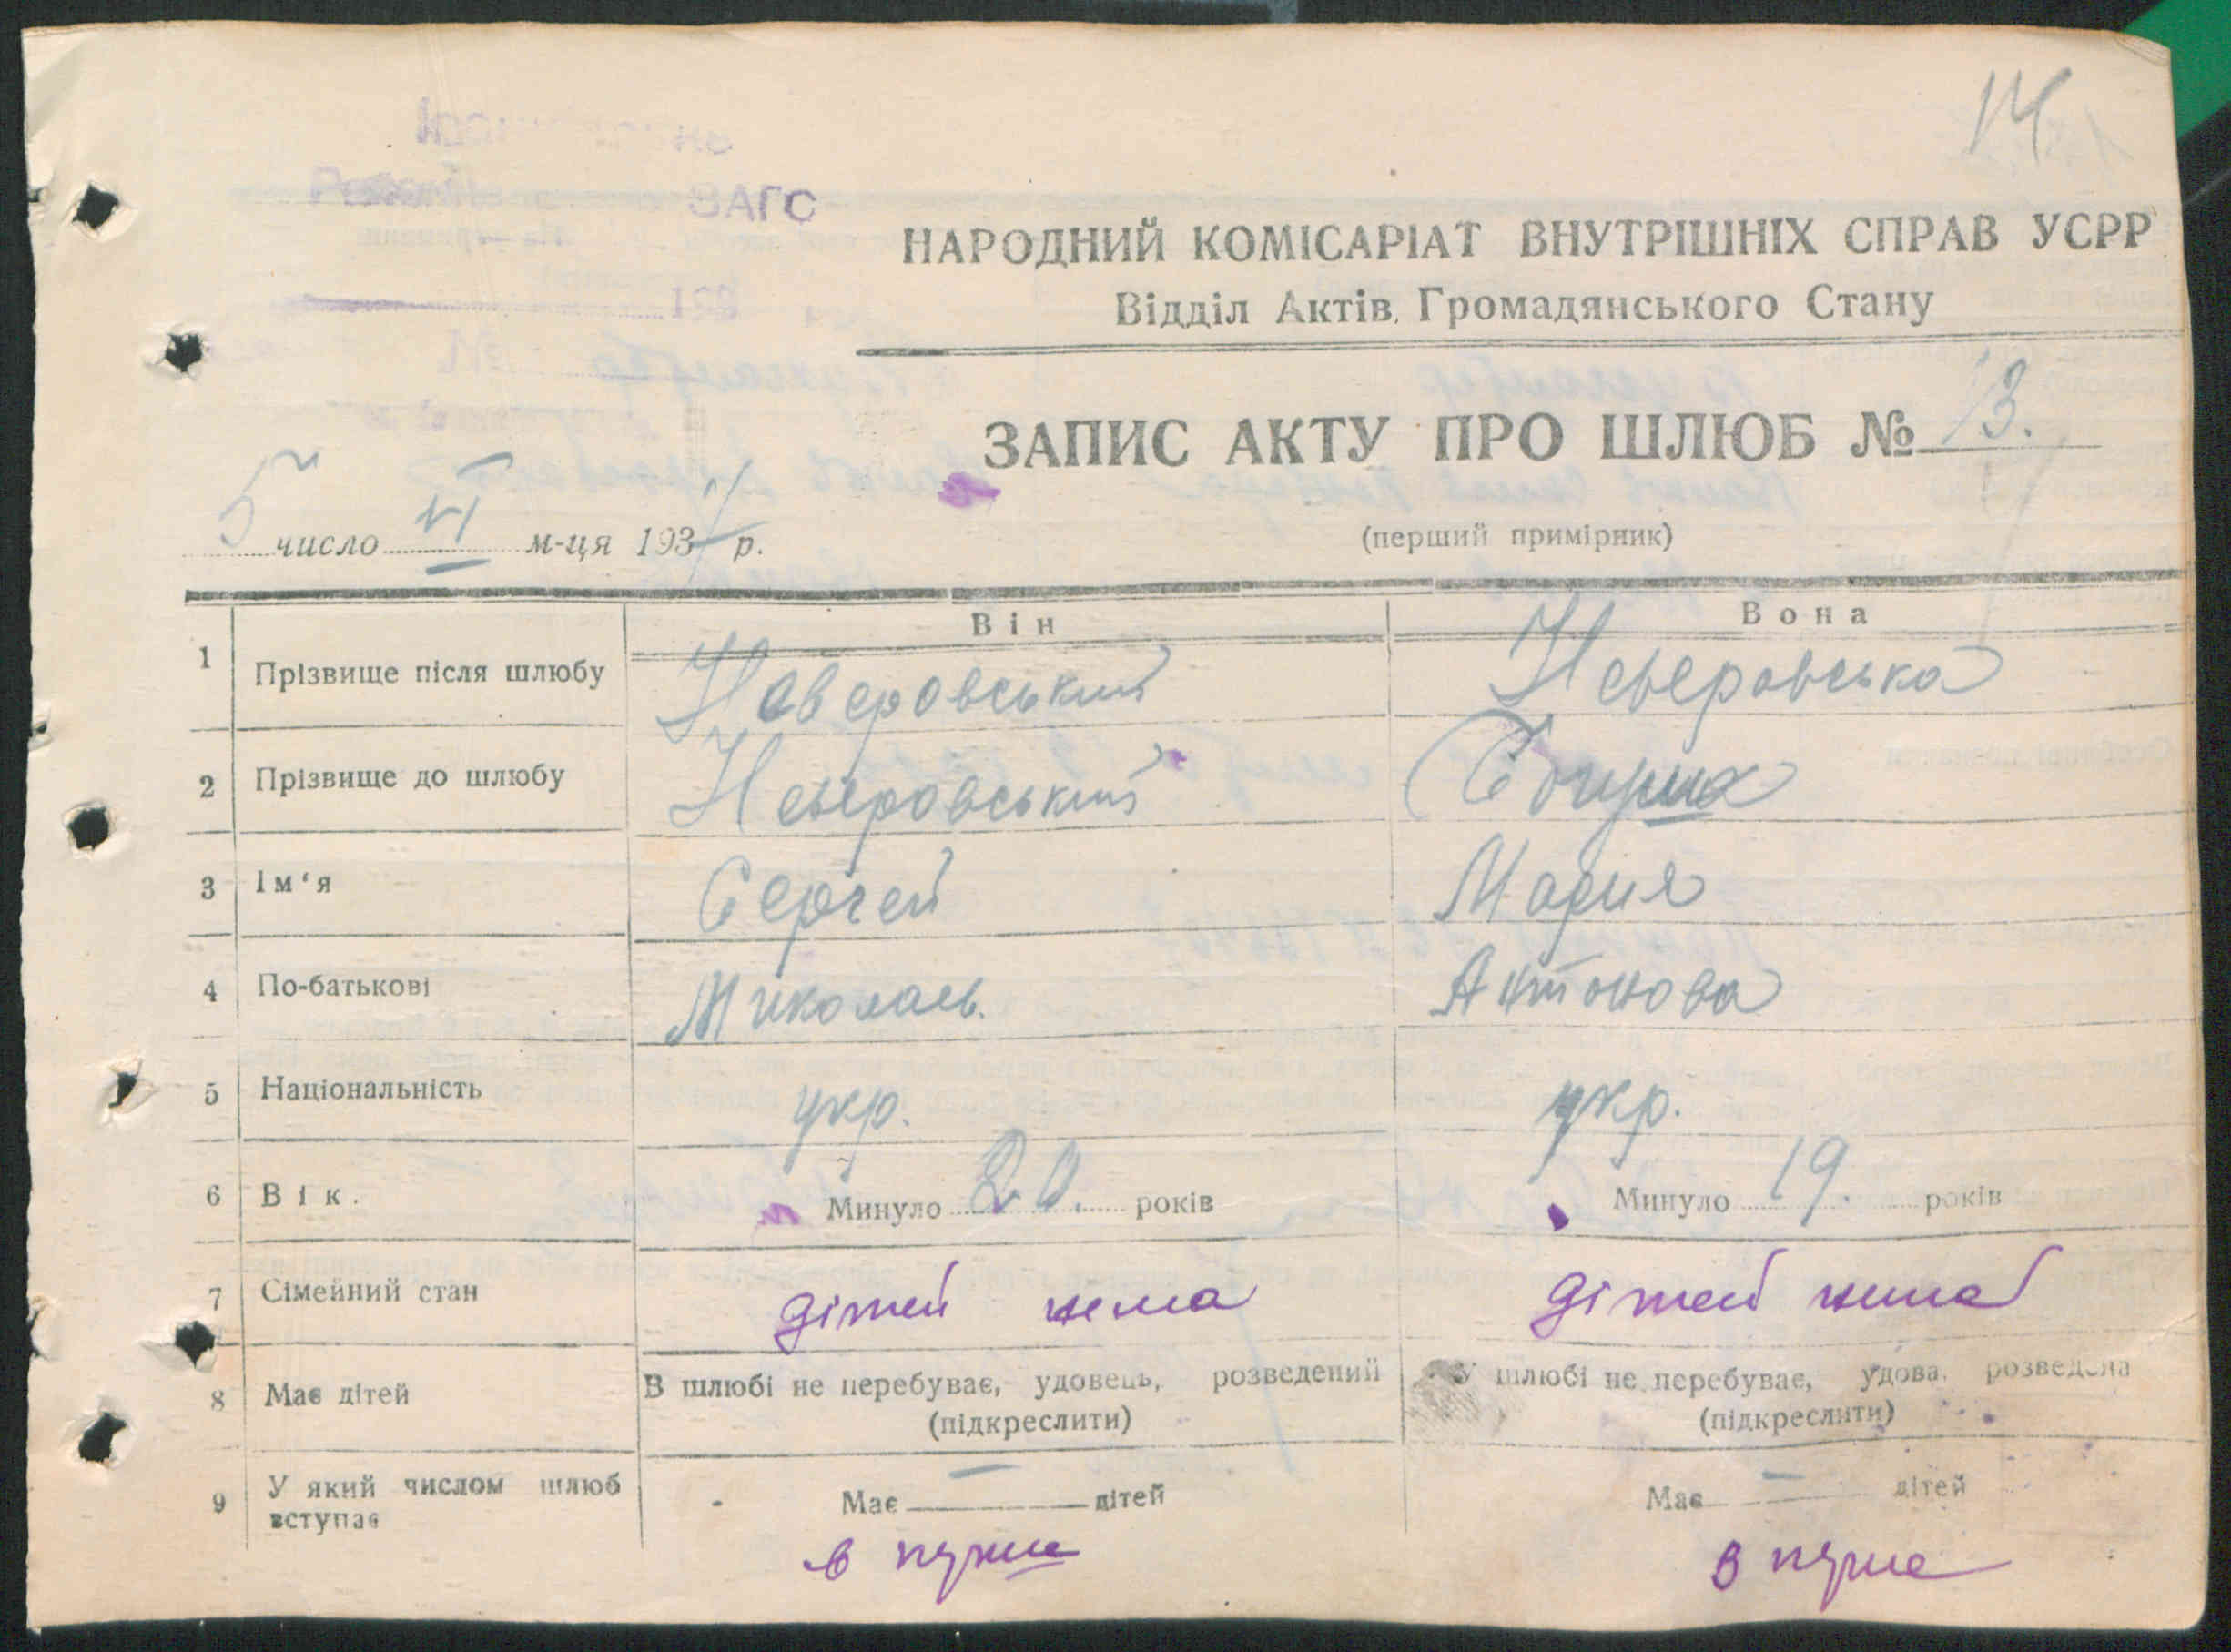 14
ЗАГС
НАРОДНИЙ КОМІСАРІАТ ВНУТРІШНІХ СПРАВ УСРР
Відділ Актів Громадянського Стану
193
ЗАПИС АКТУ ПРО ШЛЮБ № 13.
5 число VI м-ця 1937 р.
(перший примірник)
Він Вона
1 Прізвище після шлюбу Неверовський Неверовська
2 Прізвище до шлюбу Неверовський
3 Ім‘я Сергей Мария
4 По-батькові Миколаев. Антонова
5 Національність укр. укр.
6 Вік. Минуло 20. років Минуло 19. років
7 Сімейний стан дітей нема дітей нема
8 Має дітей В шлюбі не перебуває, удовець, розведений У шлюбі не перебуває, удова, розведена
(підкреслити) (підкреслити)
9 У який числом шлюб вступає Має — дітей Має — дітей
в перше в перше